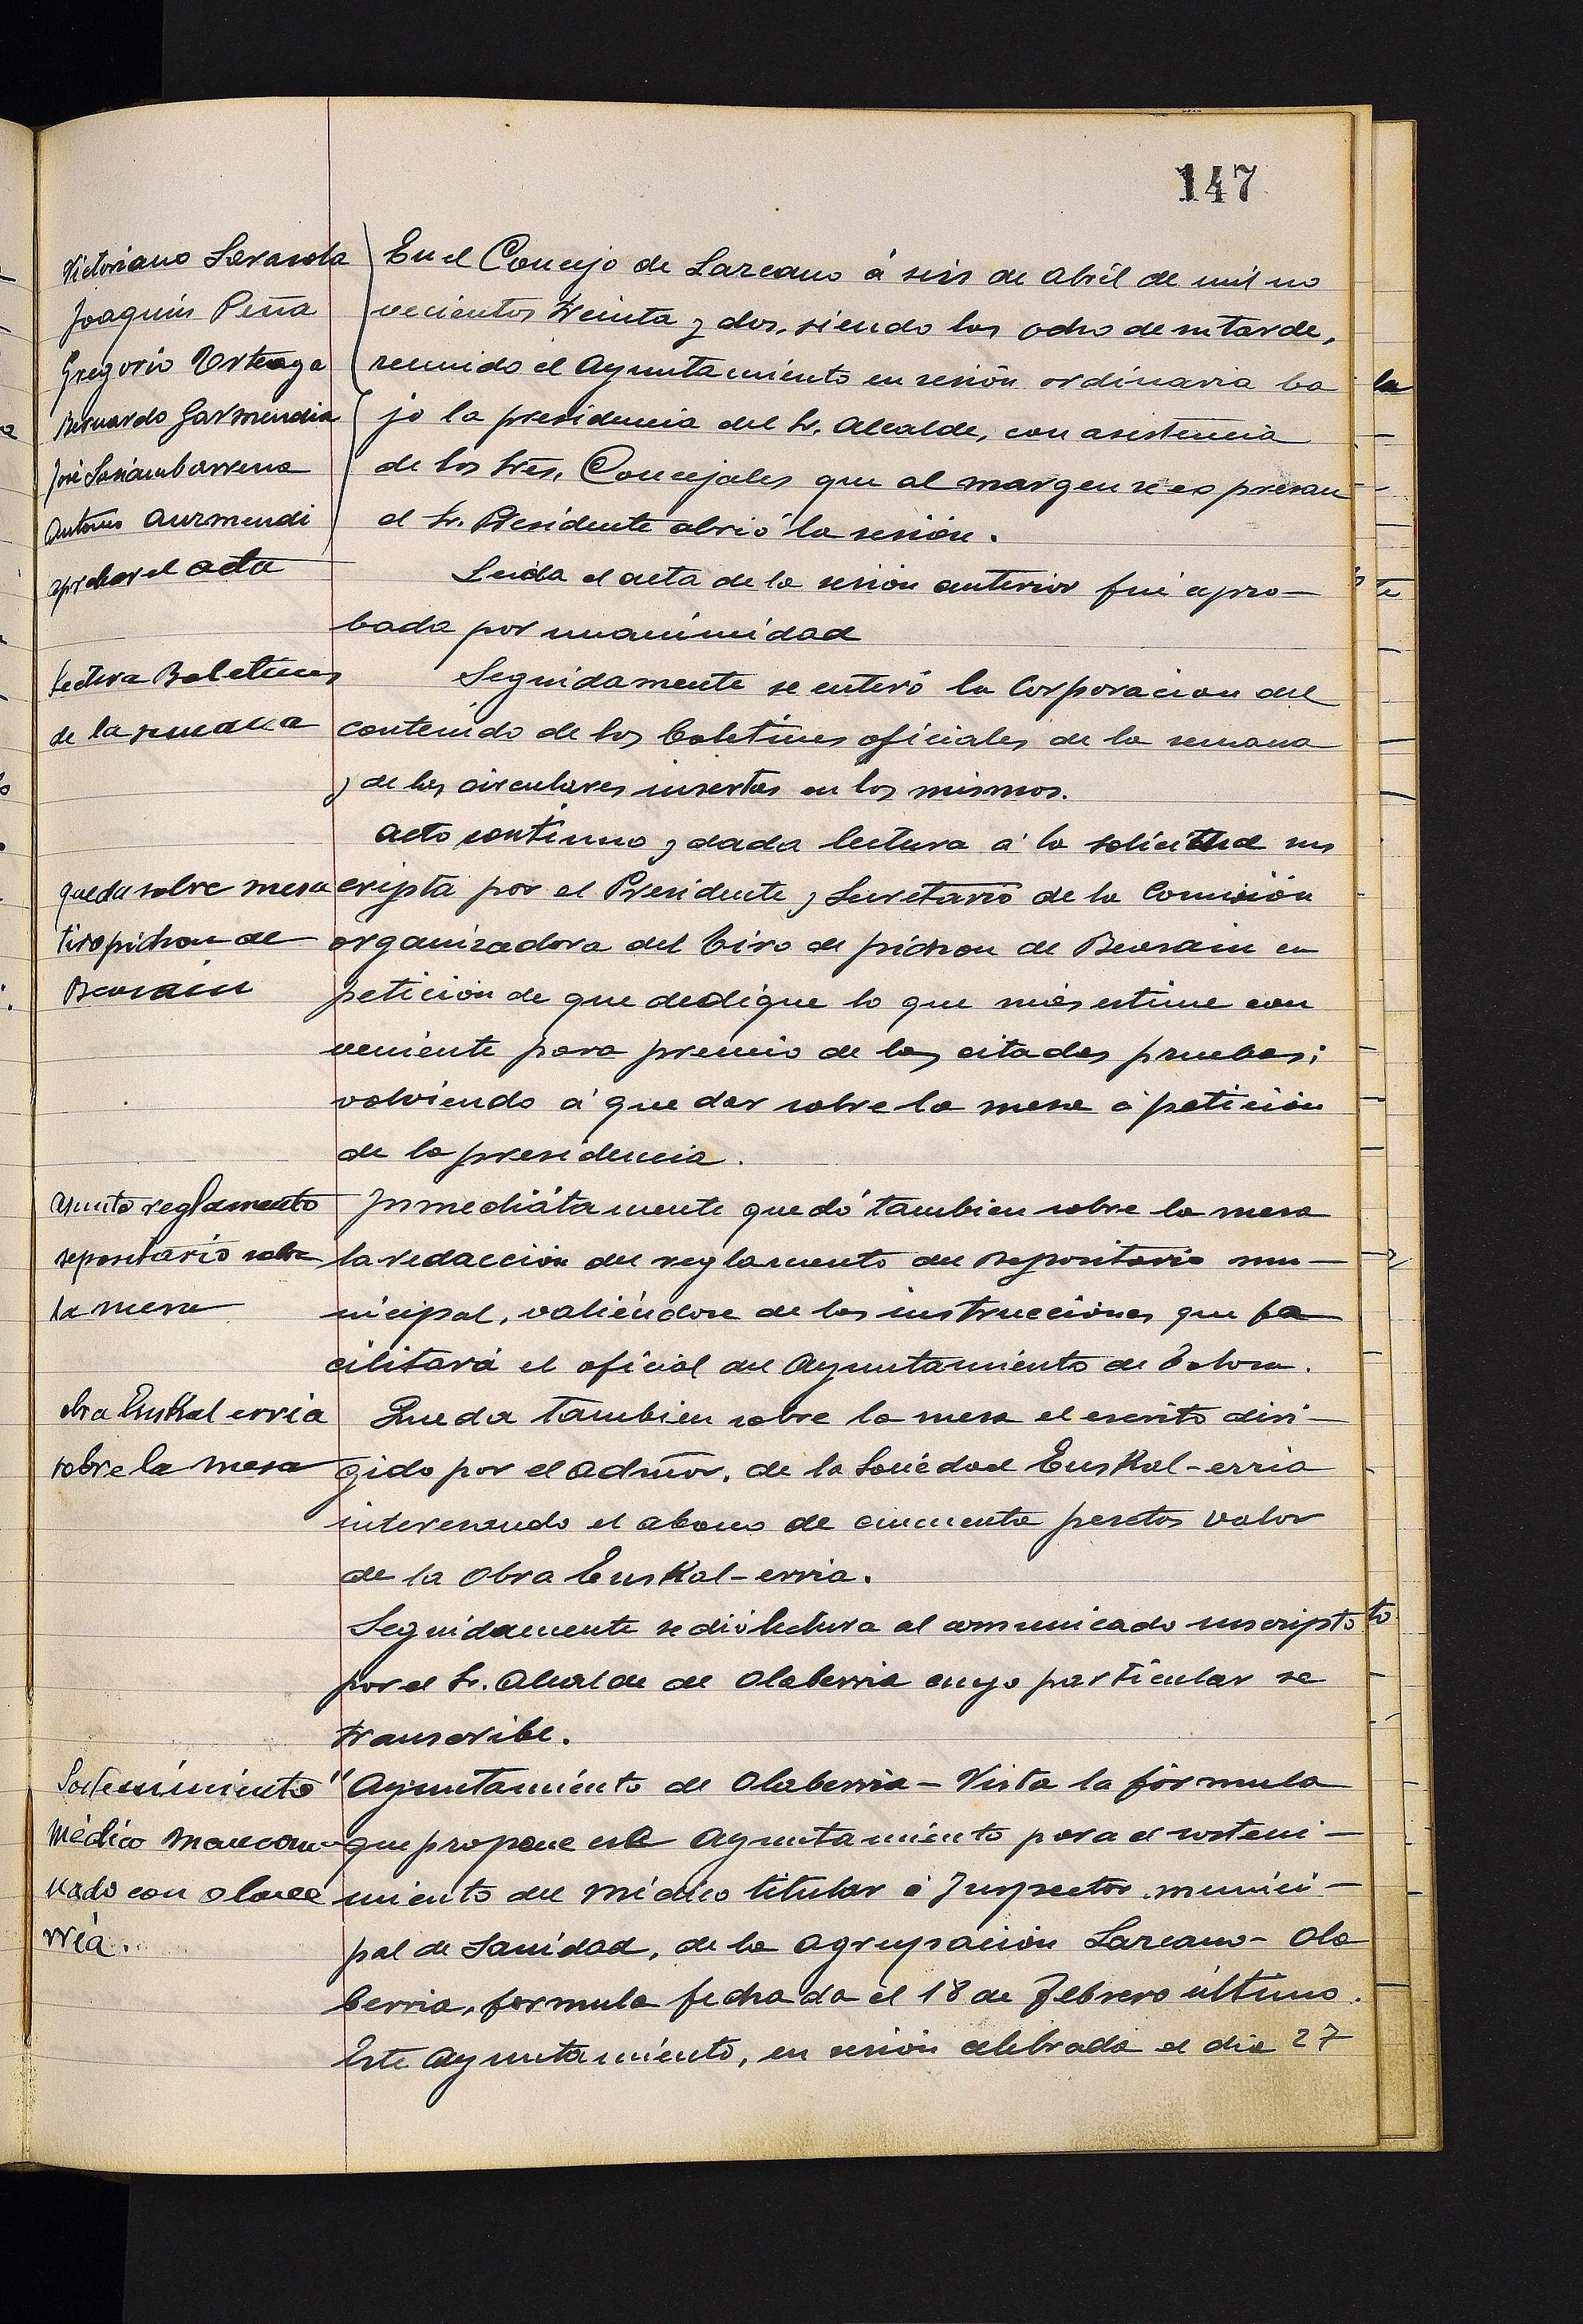 147
Victoriano Sarasola
Joaquin Peña
Gregorio Urteaga
Bernardo Garmendia
José Insausambarrena
Antonio Aurmendi
aprobar el acta
En el Concejo de Lazcano á seis de Abril de mil no
vecientos treinta y dos, siendo las ocho de su tarde,
reunido el Ayuntamiento en sesión ordinaria ba
jo la presidencia del Sr. Alcalde, con asistencia
de los Sres. Concejales que al margen se expresan
el Sr. Presidente abrió la sesión.
Leida el acta de la sesión anterior fué apro—
bada por unanimidad
Lectura Boletines
de la semana
Seguidamente se enteró la Corporacion del
contenido de los Boletines oficiales de la semana
y de las circulares insertas en los mismos.
Acto continuo y dada lectura á la solicitud sus
queda sobre mesa
tiro pichon de
Beasain
cripta por el Presidente y Secretario de la Comisión
organizadora del tiro de pichon de Beasain en
petición de que dedique lo que más estime con
veniente para premio de las citadas pruebas;
volviendo á quedar sobre la mesa á petición
de la presidencia.
Asunto reglamento
depositario sobre
la mesa
Inmediatamente quedó tambien sobre la mesa
la redacción del reglamento del Depositario mu—
nicipal, valiéndose de las instrucciones que fa
cilitará el oficial del Ayuntamiento de Tolosa.
obra Euskal erria
sobre la mesa
Queda tambien sobre la mesa el escrito diri—
gido por el Admor. de la Sociedad Euskal-erria
interesando el abono de cincuenta pesetas valor
de la obra Euskal-erria.
Seguidamente se dió lectura al comunicado suscripto
por el Sr. Alcalde de Olaberria cuyo particular se
transcribe.
Sostenimiento
Médico mancomu-
nado con olabe
rria.
"Ayuntamiento de Olaberria — Vista la fórmula
que propone ese Ayuntamiento para el sosteni—
miento del Médico titular é Inspector munici—
pal de Sanidad, de la agrupación Lazcano-Ola
berria, formula fechada el 18 de Febrero último.
Este Ayuntamiento, en sesión celebrada el dia 27